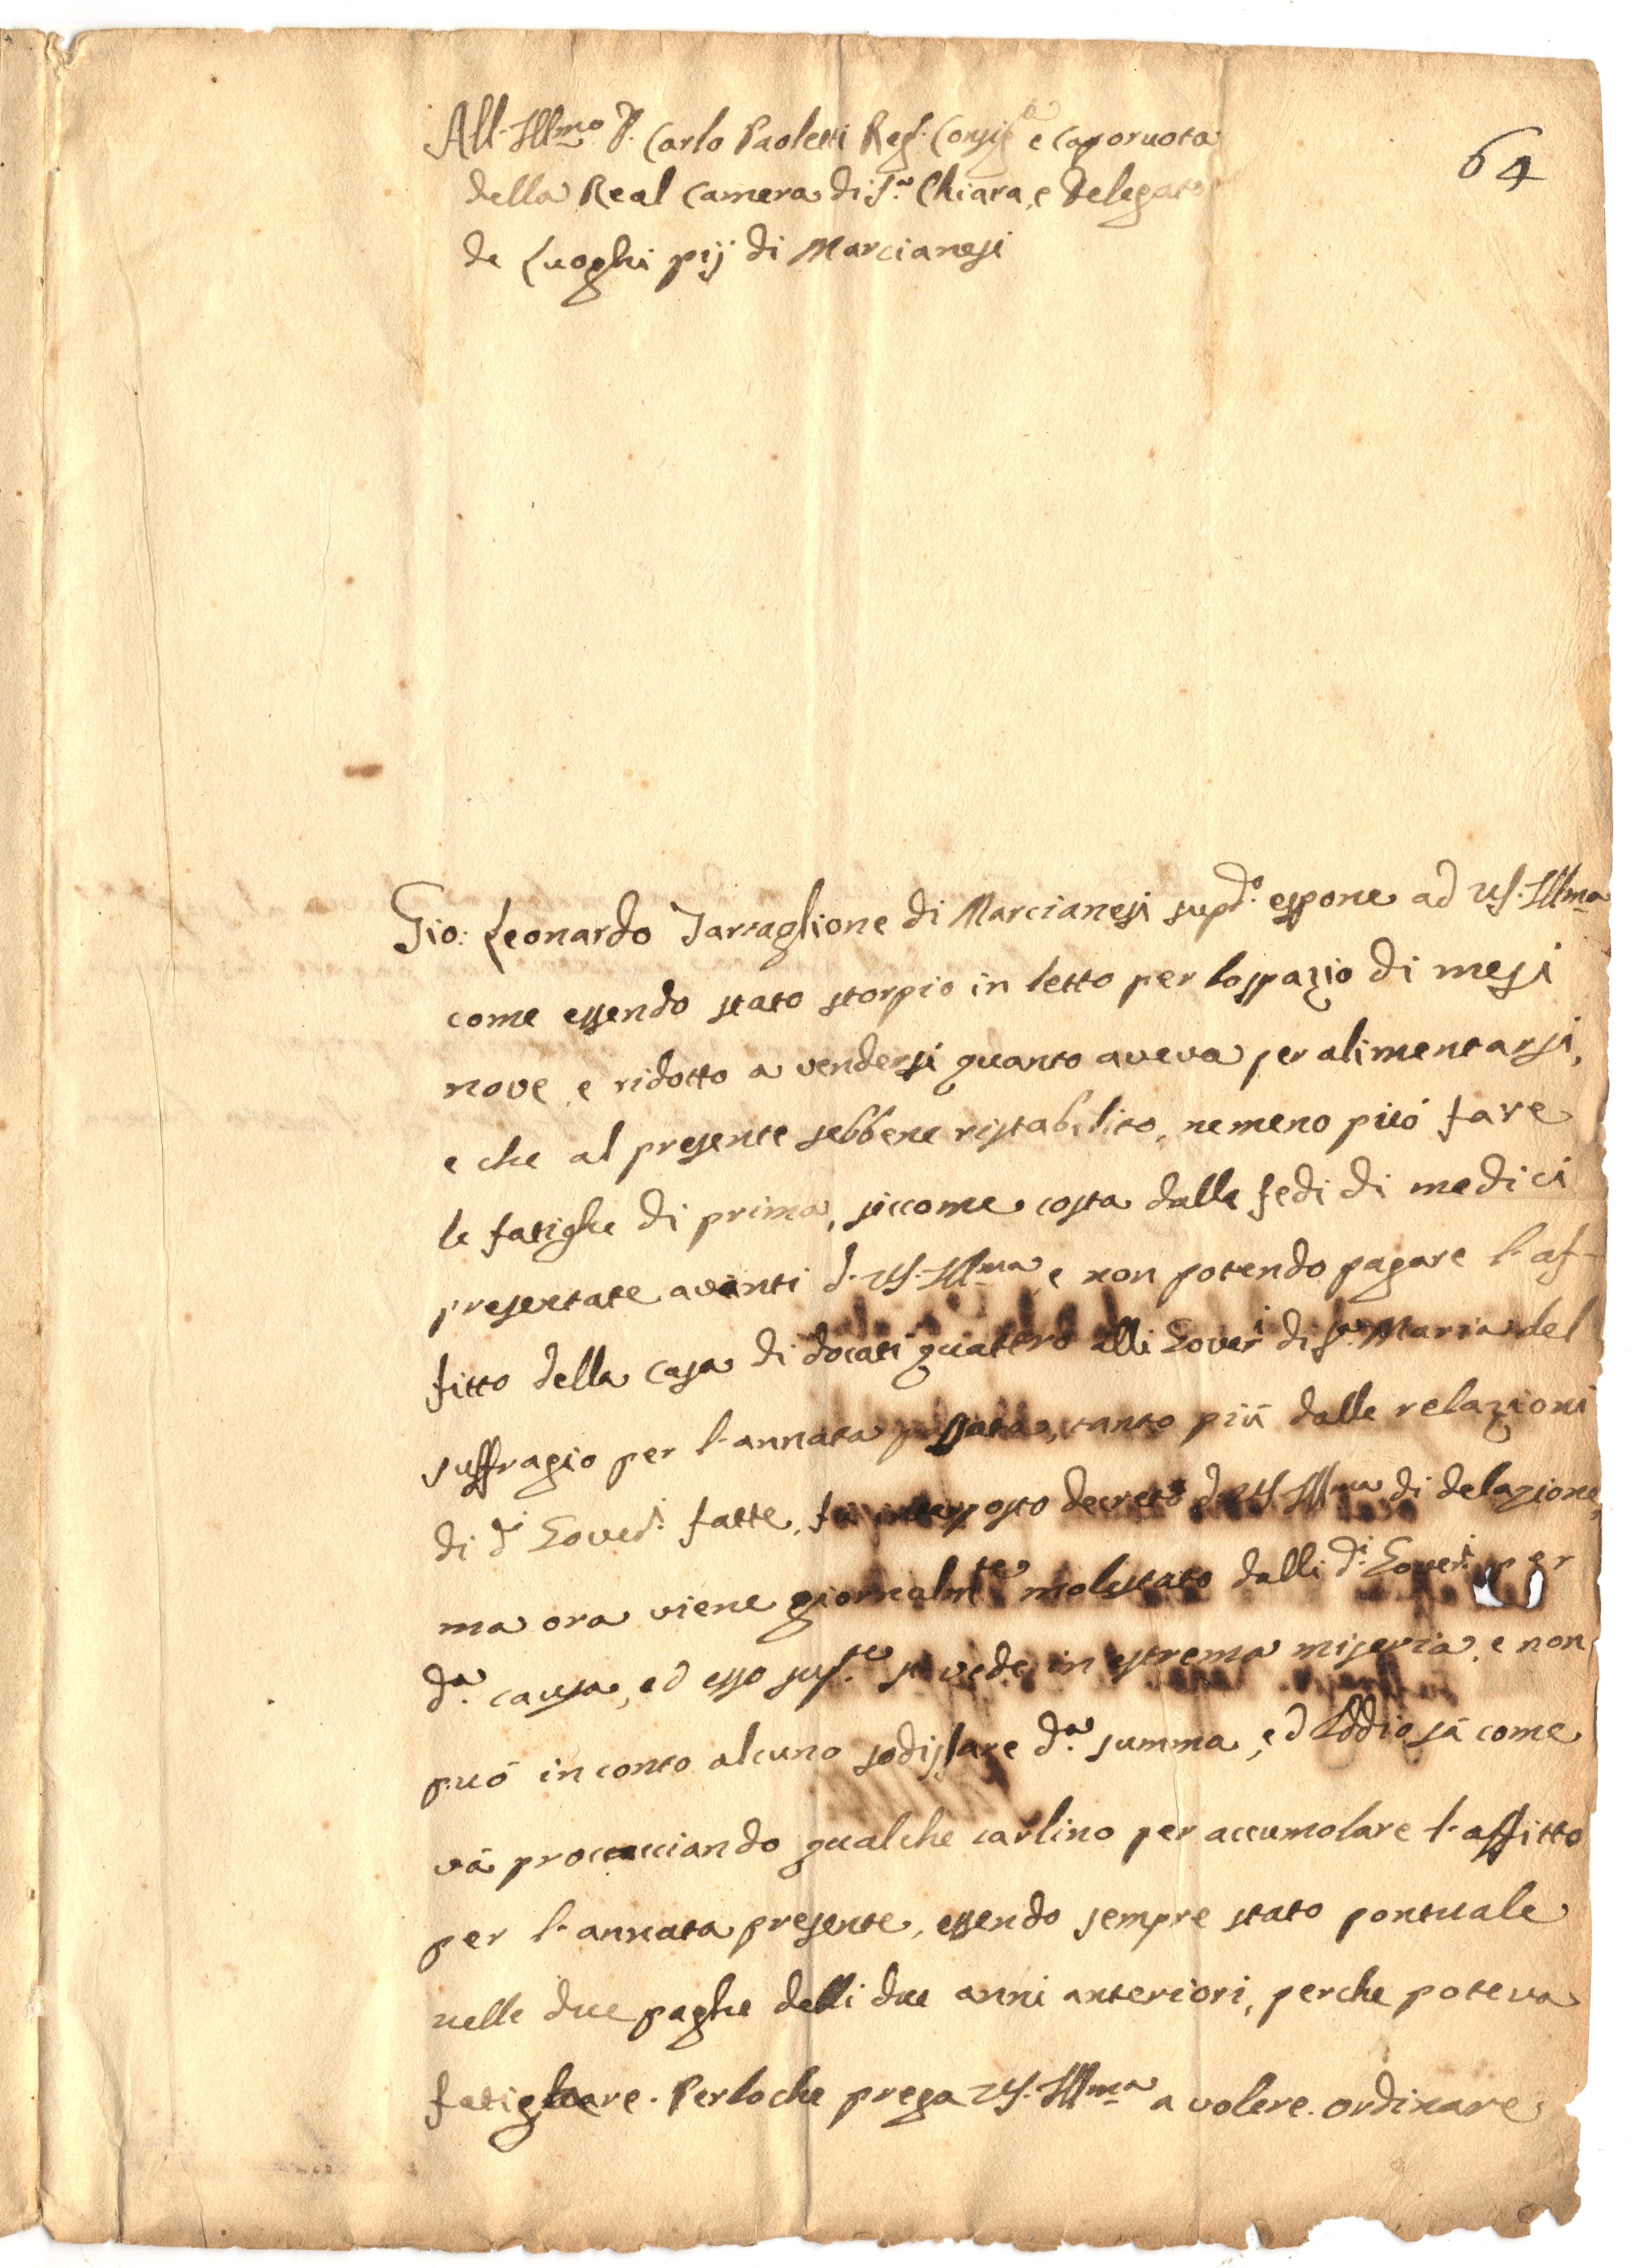 All. Illmo D. Carlo Paoletti Reg. Consigo e Caporuota
64
della Real Camera di S.a Chiara, e Delegato
de Luoghi pij di Marcianesi
Gio: Leonardo Tartaglione di Marcianesi supd.e espone ad VS. Illma
come essendo stato storpio in letto per lo spazio di mesi
nove, e ridotto a vendersi quanto aveva per alimentarsi,
e che al presente sebbene ristabilito, nemeno può fare
le fatighe di prima, siccome costa dalle fedi di medici
presentate avanti d. VS. Illma, e non potendo pagare l'af-
fitto della casa di docati quattro alli Goveri di S.a Maria del
suffragio per l'annata passata, tanto più dalle relazioni
di d.i Goveri. fatte, fu interposto decreto da VS Illma di delazione,
ma ora viene giornalmte molestato dalli d.i Goveri. per
d.a causa, ed esso supte si vede in estrema miseria, e non
può in conto alcuno sodisfare d.a summa, ed Iddio sà come
và procacciando qualche carlino per accumolare l'affitto
per l'annata presente, essendo sempre stato pontuale
nelle due paghe delli due anni anteriori, perche poteva
fatighare. Perloche prega VS. Illma a volere ordinare